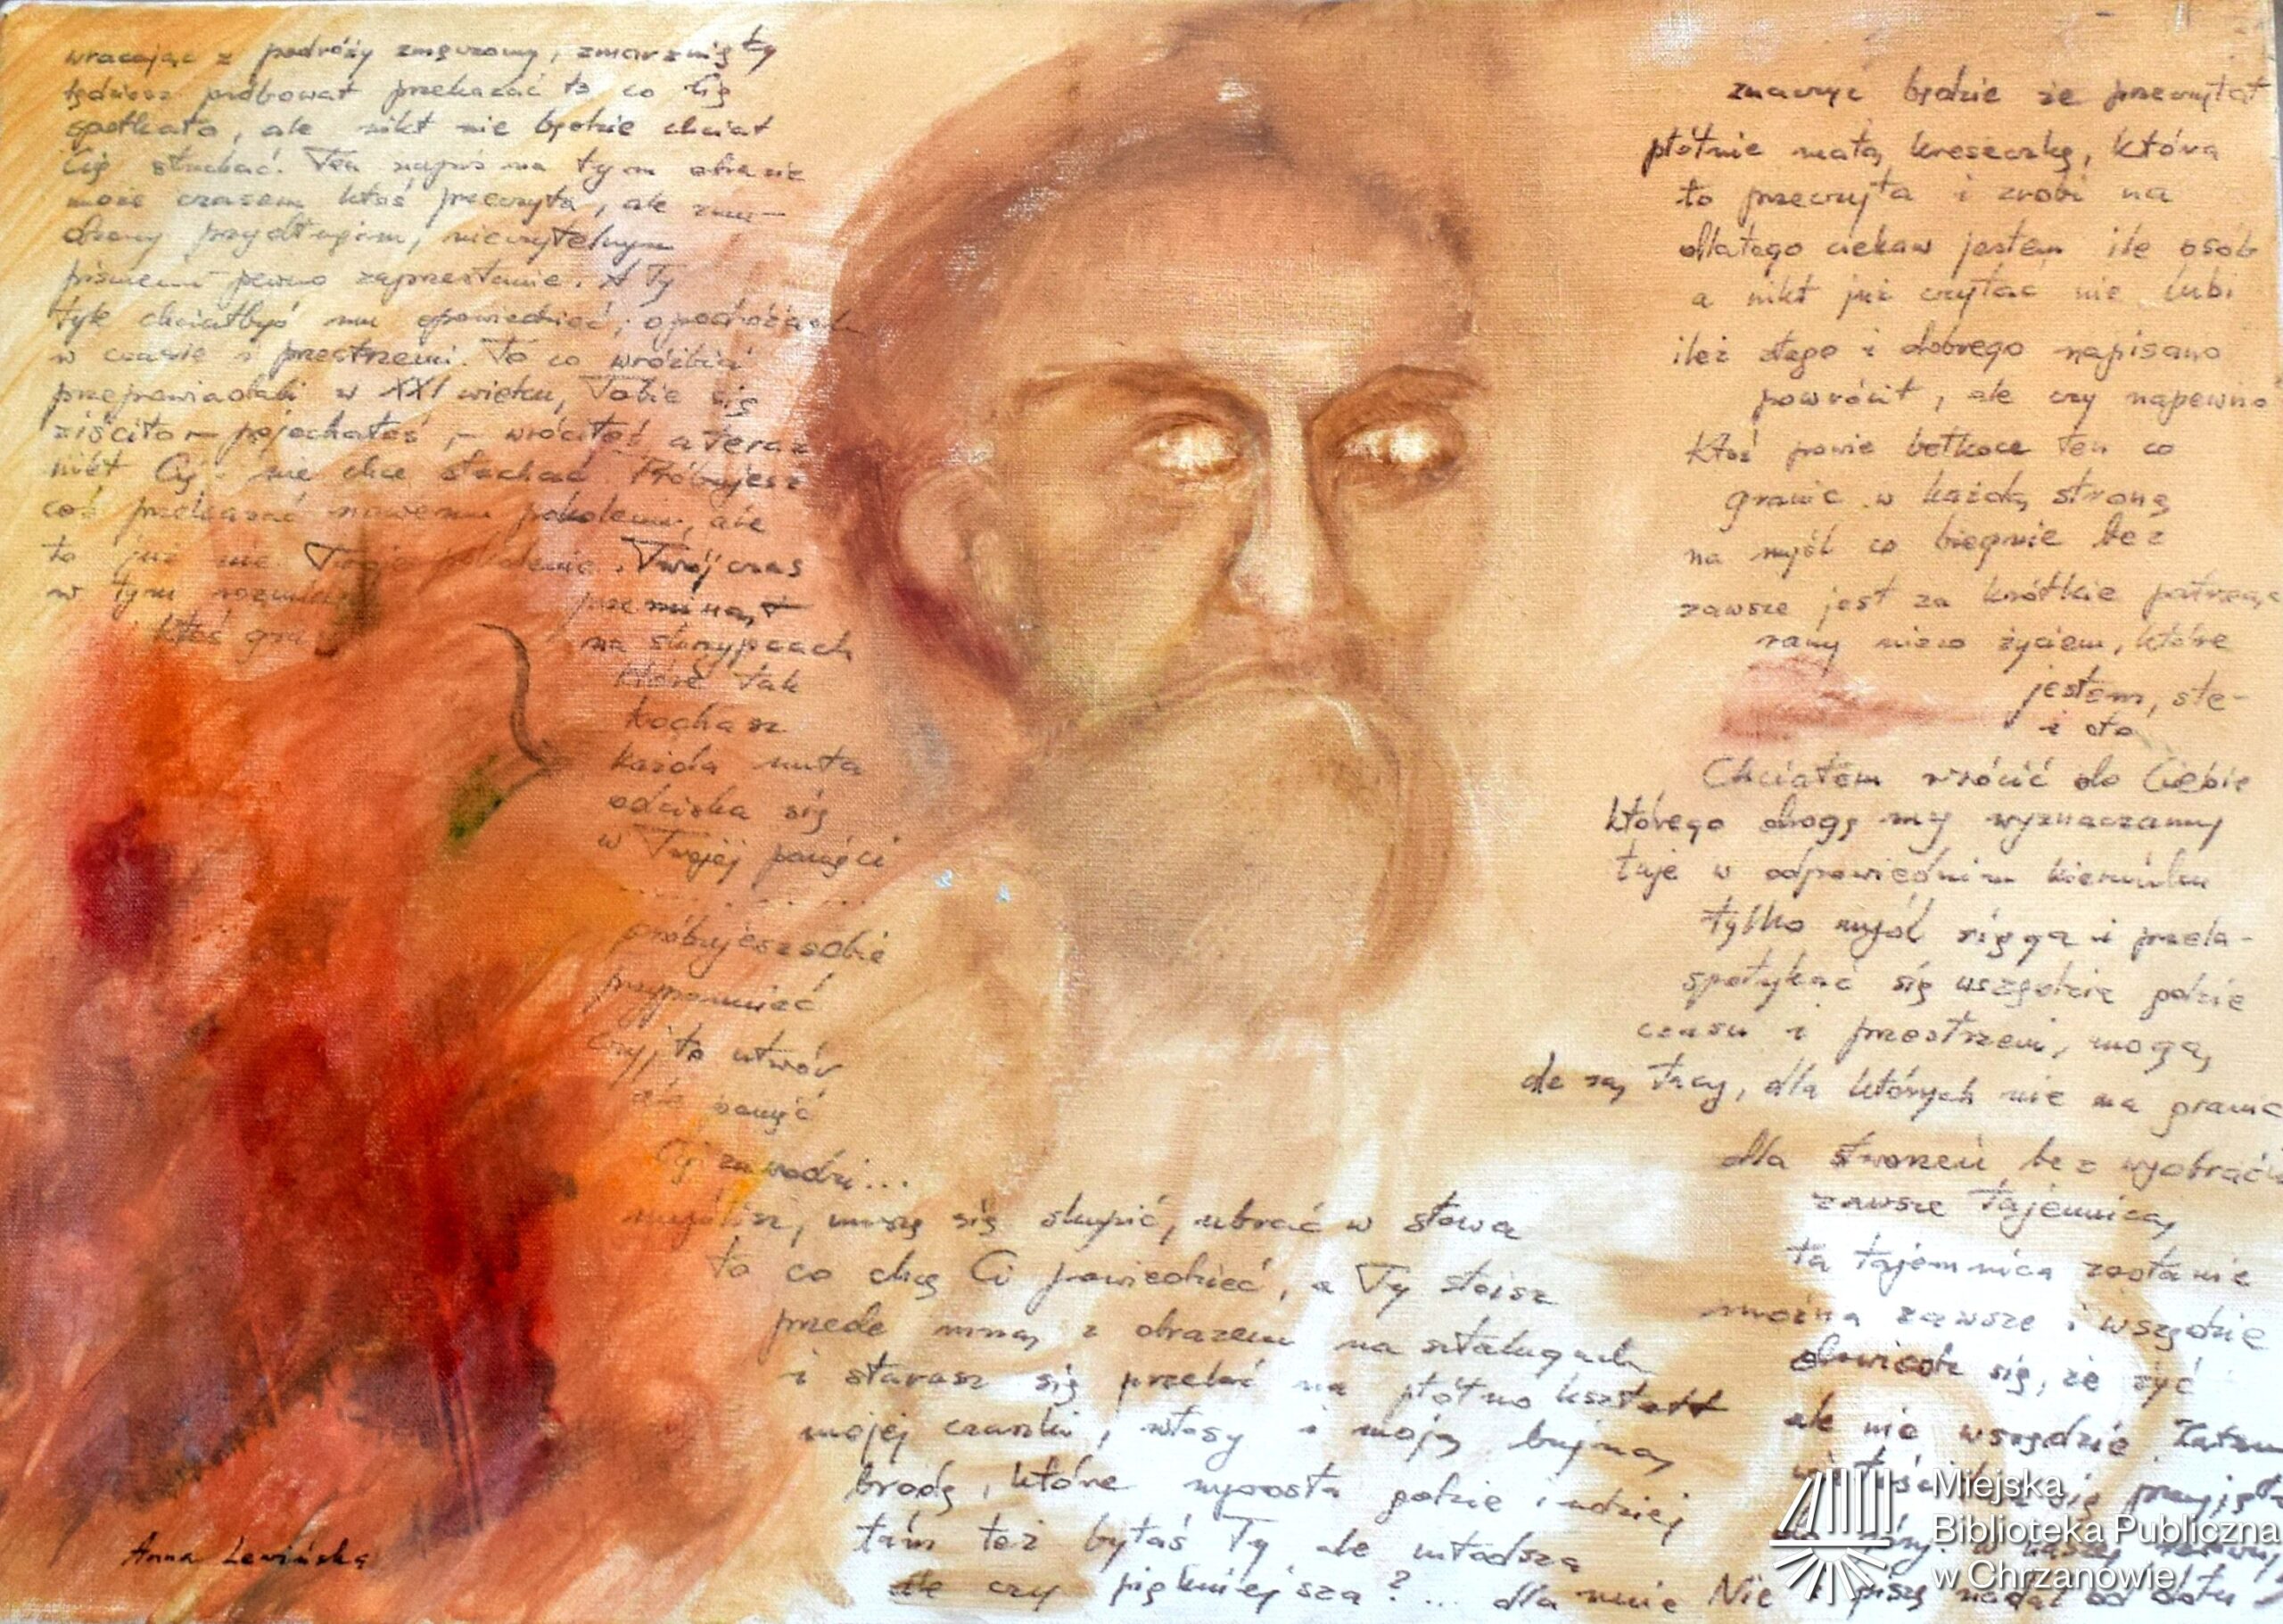 wracając z podróży zmęczony, zmarznięty
będziesz próbował przekazać to co Cię
spotkało, ale nikt nie będzie chciał
Cię słuchać. Ten napis na tym obrazie
może czasem ktoś przeczyta, ale znu-
dzony przydługim, nieczytelnym
pismem pewno zaprzestanie. A Ty
tyle chciałbyś mu opowiedzieć, o podróżach
w czasie i przestrzeni. To co wróżbici
przepowiadali w XXI wieku, Tobie się
ziściło – pojechałeś, – wróciłeś a teraz
nikt Cię nie chce słuchać. Próbujesz
coś przekazać nowemu pokoleniu, ale
to już nie Twoje pokolenie. Twój czas
w tym przeminął
ktoś gra na skrzypcach
które tak
kochasz
każda nuta
odciska się
w Twojej pamięci
. . . . . .
próbujesz sobie
przypomnieć
czyj to utwór
ale pamięć
Cię zawodzi...
myślisz, muszę się skupić, ubrać w słowa
to co chcę Ci powiedzieć, a Ty stoisz
przede mną z obrazem na sztalugach
i starasz się przelać na płótno kształt
mojej czaszki, włosy i moją bujną
brodę, które wyrosła gdzie indziej
tam też byłaś Ty ale młodsza
ale czy piękniejsza? ... dla mnie Nie
piszę nadal od dołu
w naszej
ale nie wszędzie
się, że żyć
można zawsze i wszędzie
ta tajemnica zostanie
zawsze tajemnicą
dla stworzeń bez wyobraźni
ale są tacy, dla których nie ma granic
czasu i przestrzeni, mogą
spotykać się wszędzie gdzie
tylko myśl sięga i przela-
tuje w odpowiednim kierunku
którego drogę my wyznaczamy
Chciałem wrócić do Ciebie
i oto
jestem, ste-
rany nieco życiem, które
zawsze jest za krótkie patrząc
na myśl co biegnie bez
granic w każdą stronę
Ktoś powie bełkoce ten co
powrócił, ale czy napewno
ileż złego i dobrego napisano
a nikt już czytać nie lubi
dlatego ciekaw jestem ile osób
to przeczyta i zrobi na
płótnie małą kreseczkę, która
znaczyć będzie że przeczytał
Anna Lewińska
Miejska
Biblioteka Publiczna
w Chrzanowie